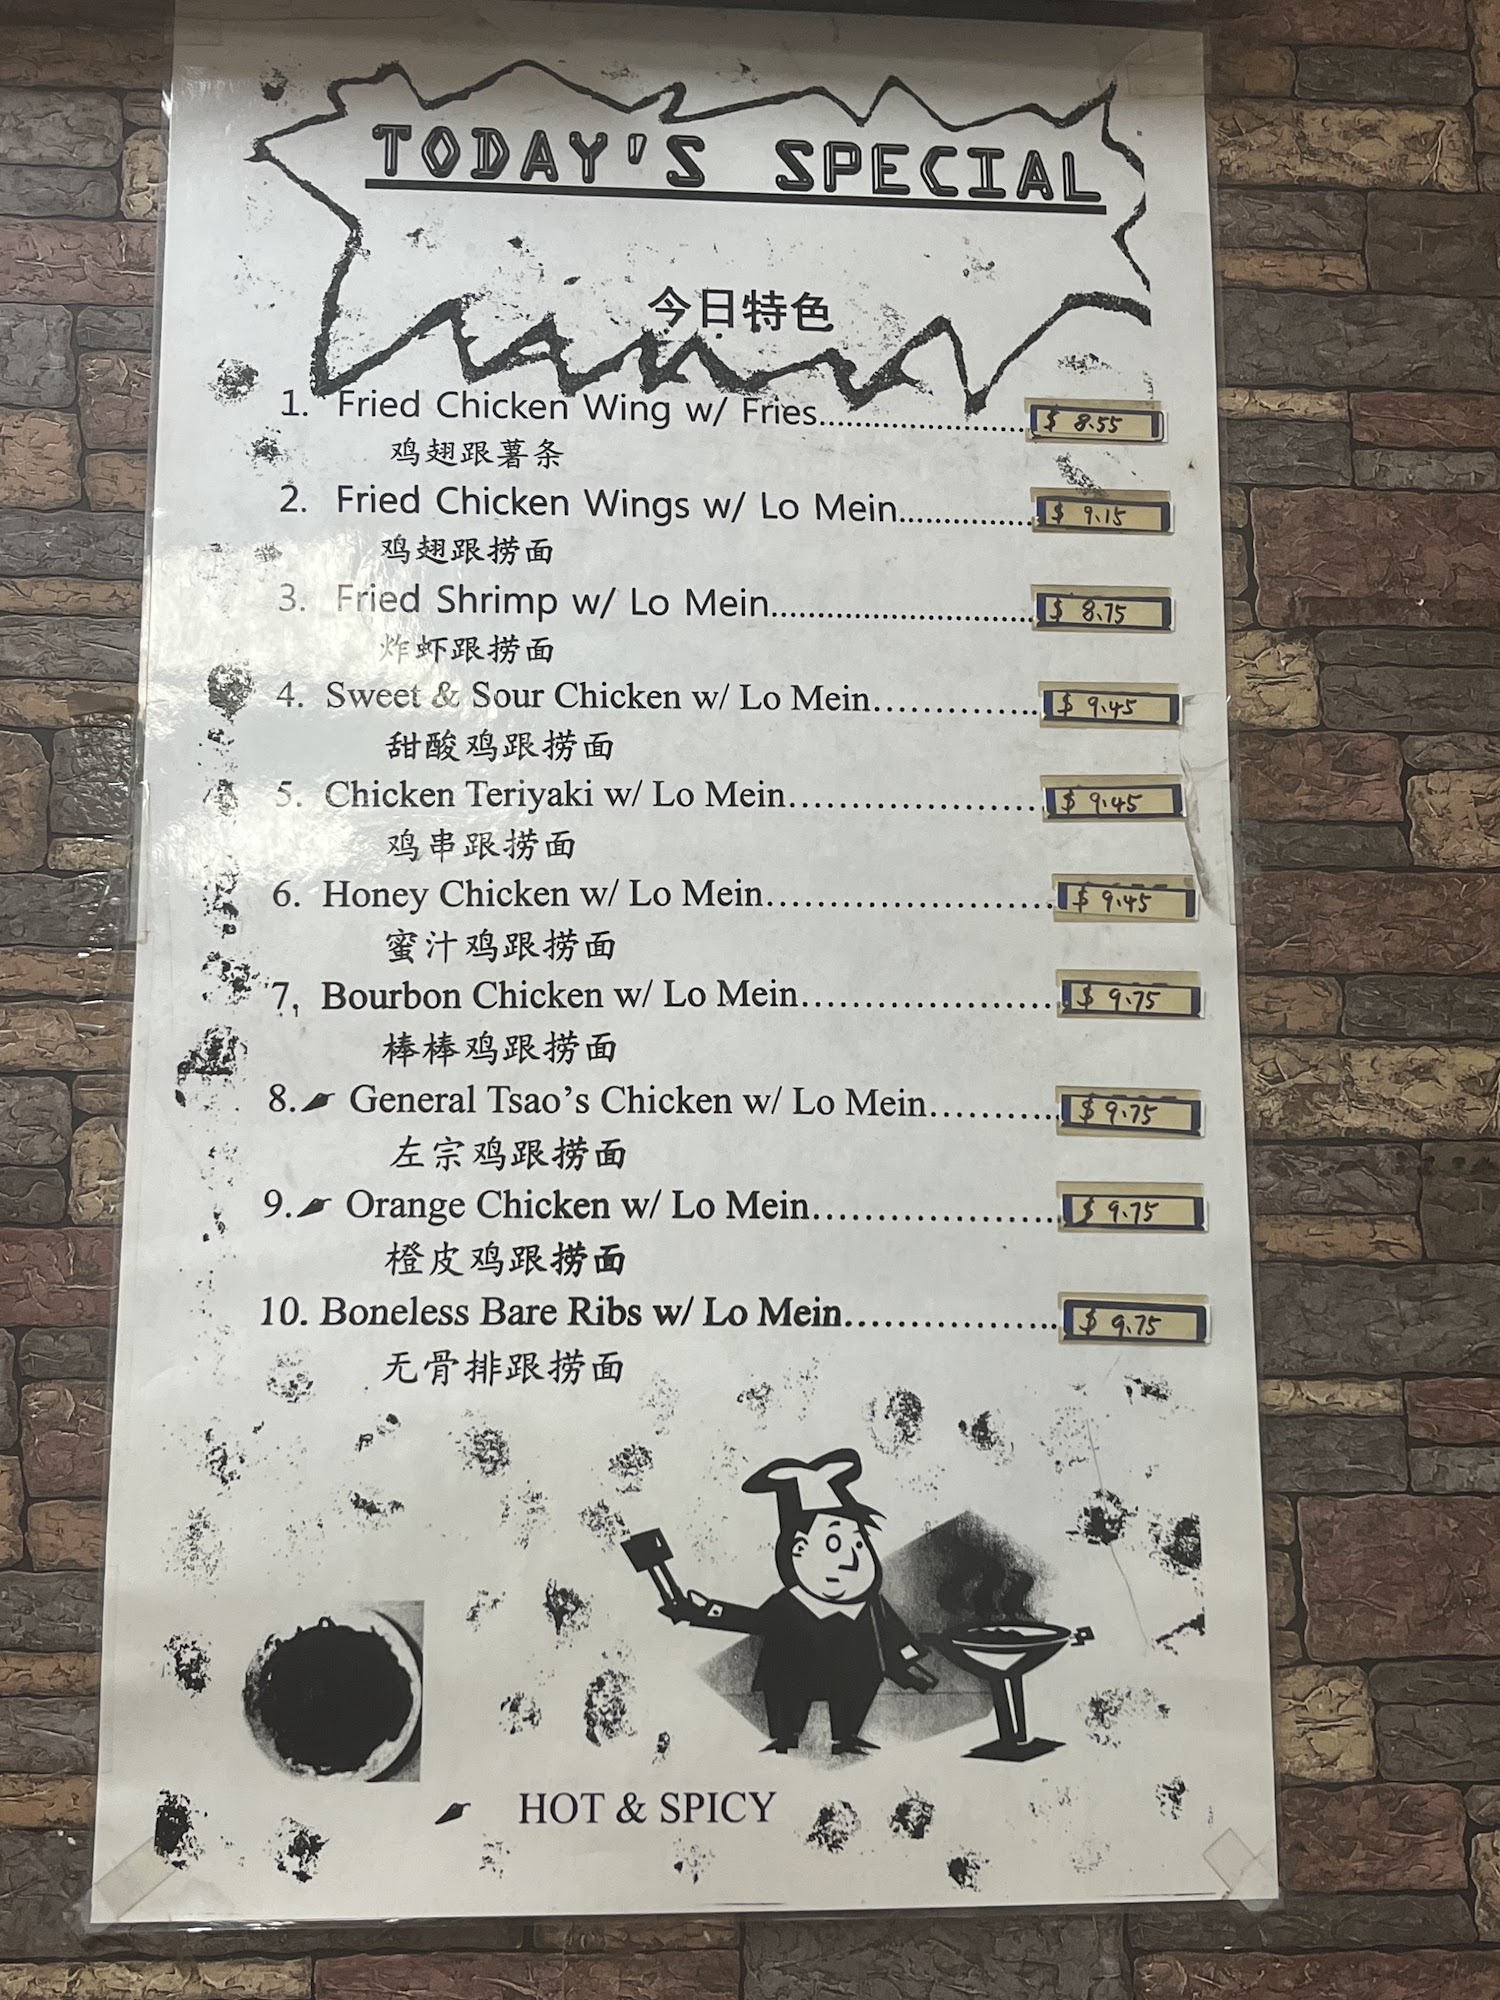 TODAY'S SPECIAL
今日特色
1. Fried Chicken Wing w/ Fries........................$ 8.55
鸡翅跟薯条
2. Fried Chicken Wings w/ Lo Mein...............$ 9.15
鸡翅跟捞面
3. Fried Shrimp w/ Lo Mein.............................$ 8.75
炸虾跟捞面
4. Sweet & Sour Chicken w/ Lo Mein................$ 9.45
甜酸鸡跟捞面
5. Chicken Teriyaki w/ Lo Mein........................$ 9.45
鸡串跟捞面
6. Honey Chicken w/ Lo Mein...........................$ 9.45
蜜汁鸡跟捞面
7, Bourbon Chicken w/ Lo Mein........................$ 9.75
棒棒鸡跟捞面
8. General Tsao’s Chicken w/ Lo Mein............$ 9.75
左宗鸡跟捞面
9. Orange Chicken w/ Lo Mein.......................$ 9.75
橙皮鸡跟捞面
10. Boneless Bare Ribs w/ Lo Mein...................$ 9.75
无骨排跟捞面
HOT & SPICY